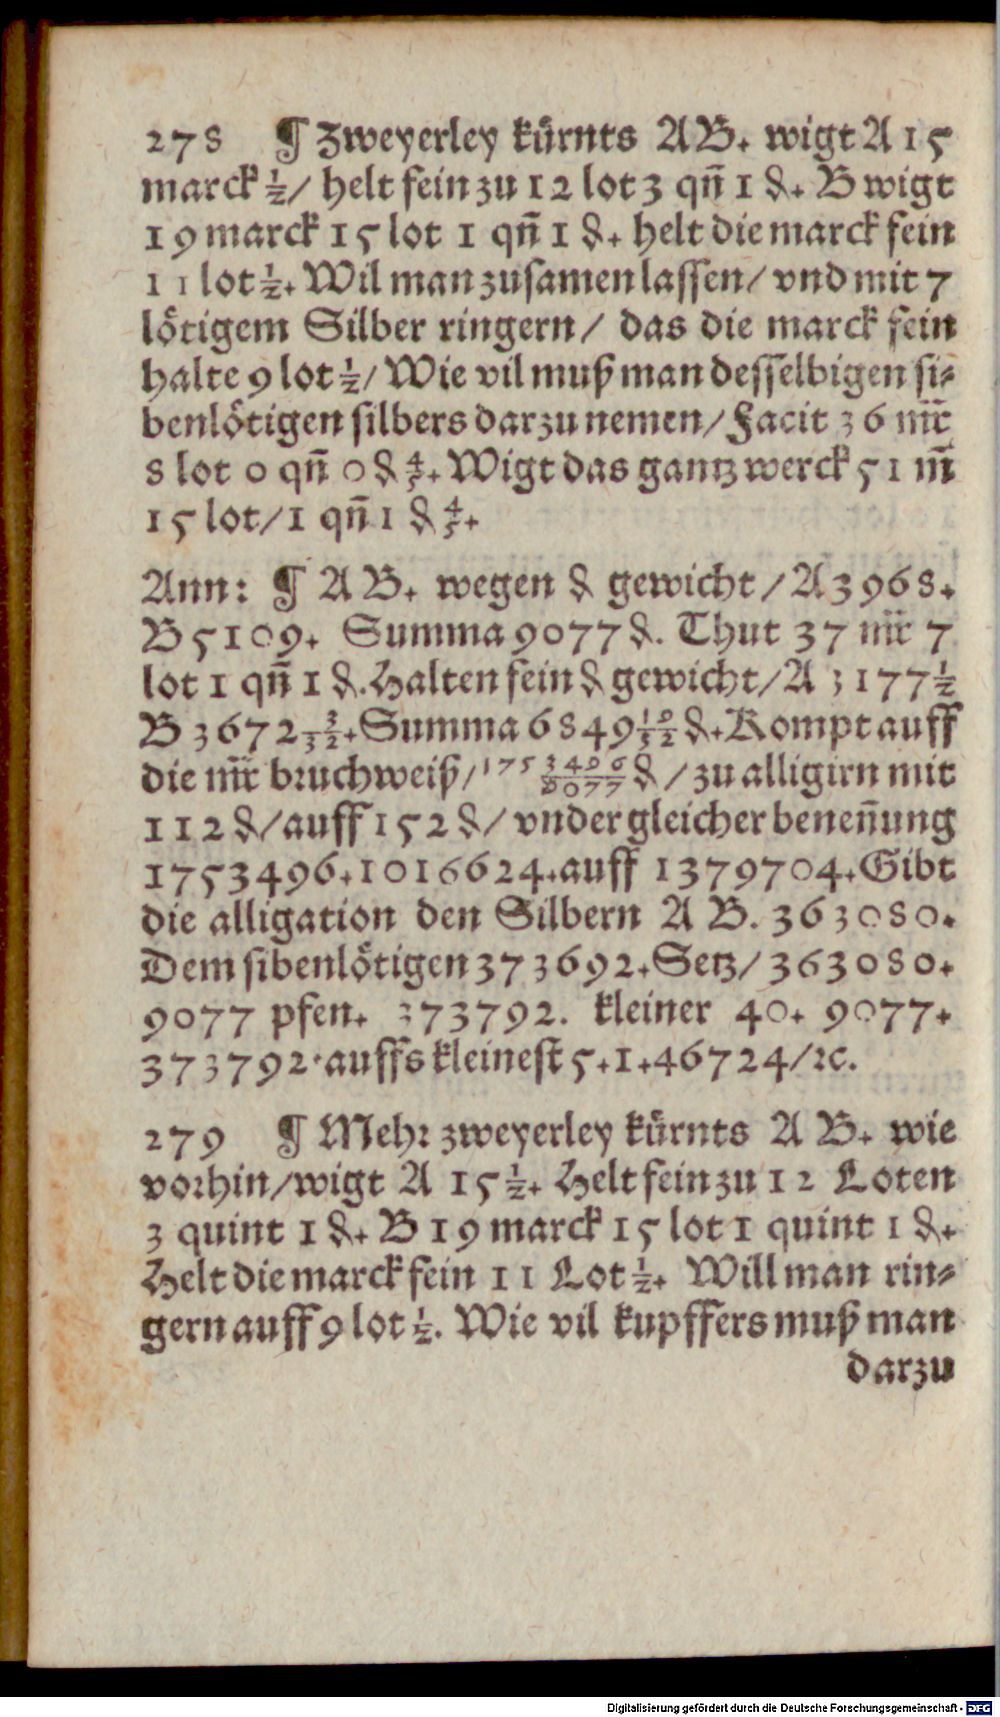 278 ¶ Zweyerley kürnts A B. wigt A 15
marck ½/ helt fein zu 12 lot 3 qn̄ 1 ₰. B wigt
19 marck 15 lot 1 qn̄ 1 ₰. helt die marck fein
11 lot ½. Wil man zusamen lassen/ vnd mit 7
lötigem Silber ringern/ das die marck fein
halte 9 lot ½/ Wie vil muß man desselbigen si⸗
benlötigen silbers darzu nemen/ Facit 36 mr̄
8 lot 0 qn̄ 0 ₰ ⅘. Wigt das gantz werck 51 m̄
15 lot/ 1 qn̄ 1 ₰ ⅘.
Ann: ¶ A B. wegen ₰ gewicht/ A 3968.
B 5109. Summa 9077 ₰. Thut 37 mr̄ 7
lot 1 qn̄ 1 ₰. Halten fein ₰ gewicht/ A 3177 ½
B 3672 3/32. Summa 6849 19/32 ₰. Kompt auff
die mr̄ bruchweiß/ 1753496/9077 ₰/ zu alligirn mit
112 ₰/ auff 152 ₰/ vnder gleicher beneñung
1753496. 1016624. auff 1379704. Gibt
die alligation den Silbern A B. 363080.
Dem sibenlötigen 373692. Setz/ 363080.
9077 pfen. 373792. kleiner 40. 9077.
373792. auffs kleinest 5. 1. 46724/ ꝛc.
279 ¶ Mehr zweyerley kürnts A B. wie
vorhin/ wigt A 15 ½. Helt fein zu 12 Loten
3 quint 1 ₰. B 19 marck 15 lot 1 quint 1 ₰.
Helt die marck fein 11 Lot ½. Will man rin⸗
gern auff 9 lot ½. Wie vil kupffers muß man
darzu
Digitalisierung gefördert durch die Deutsche Forschungsgemeinschaft - DFG